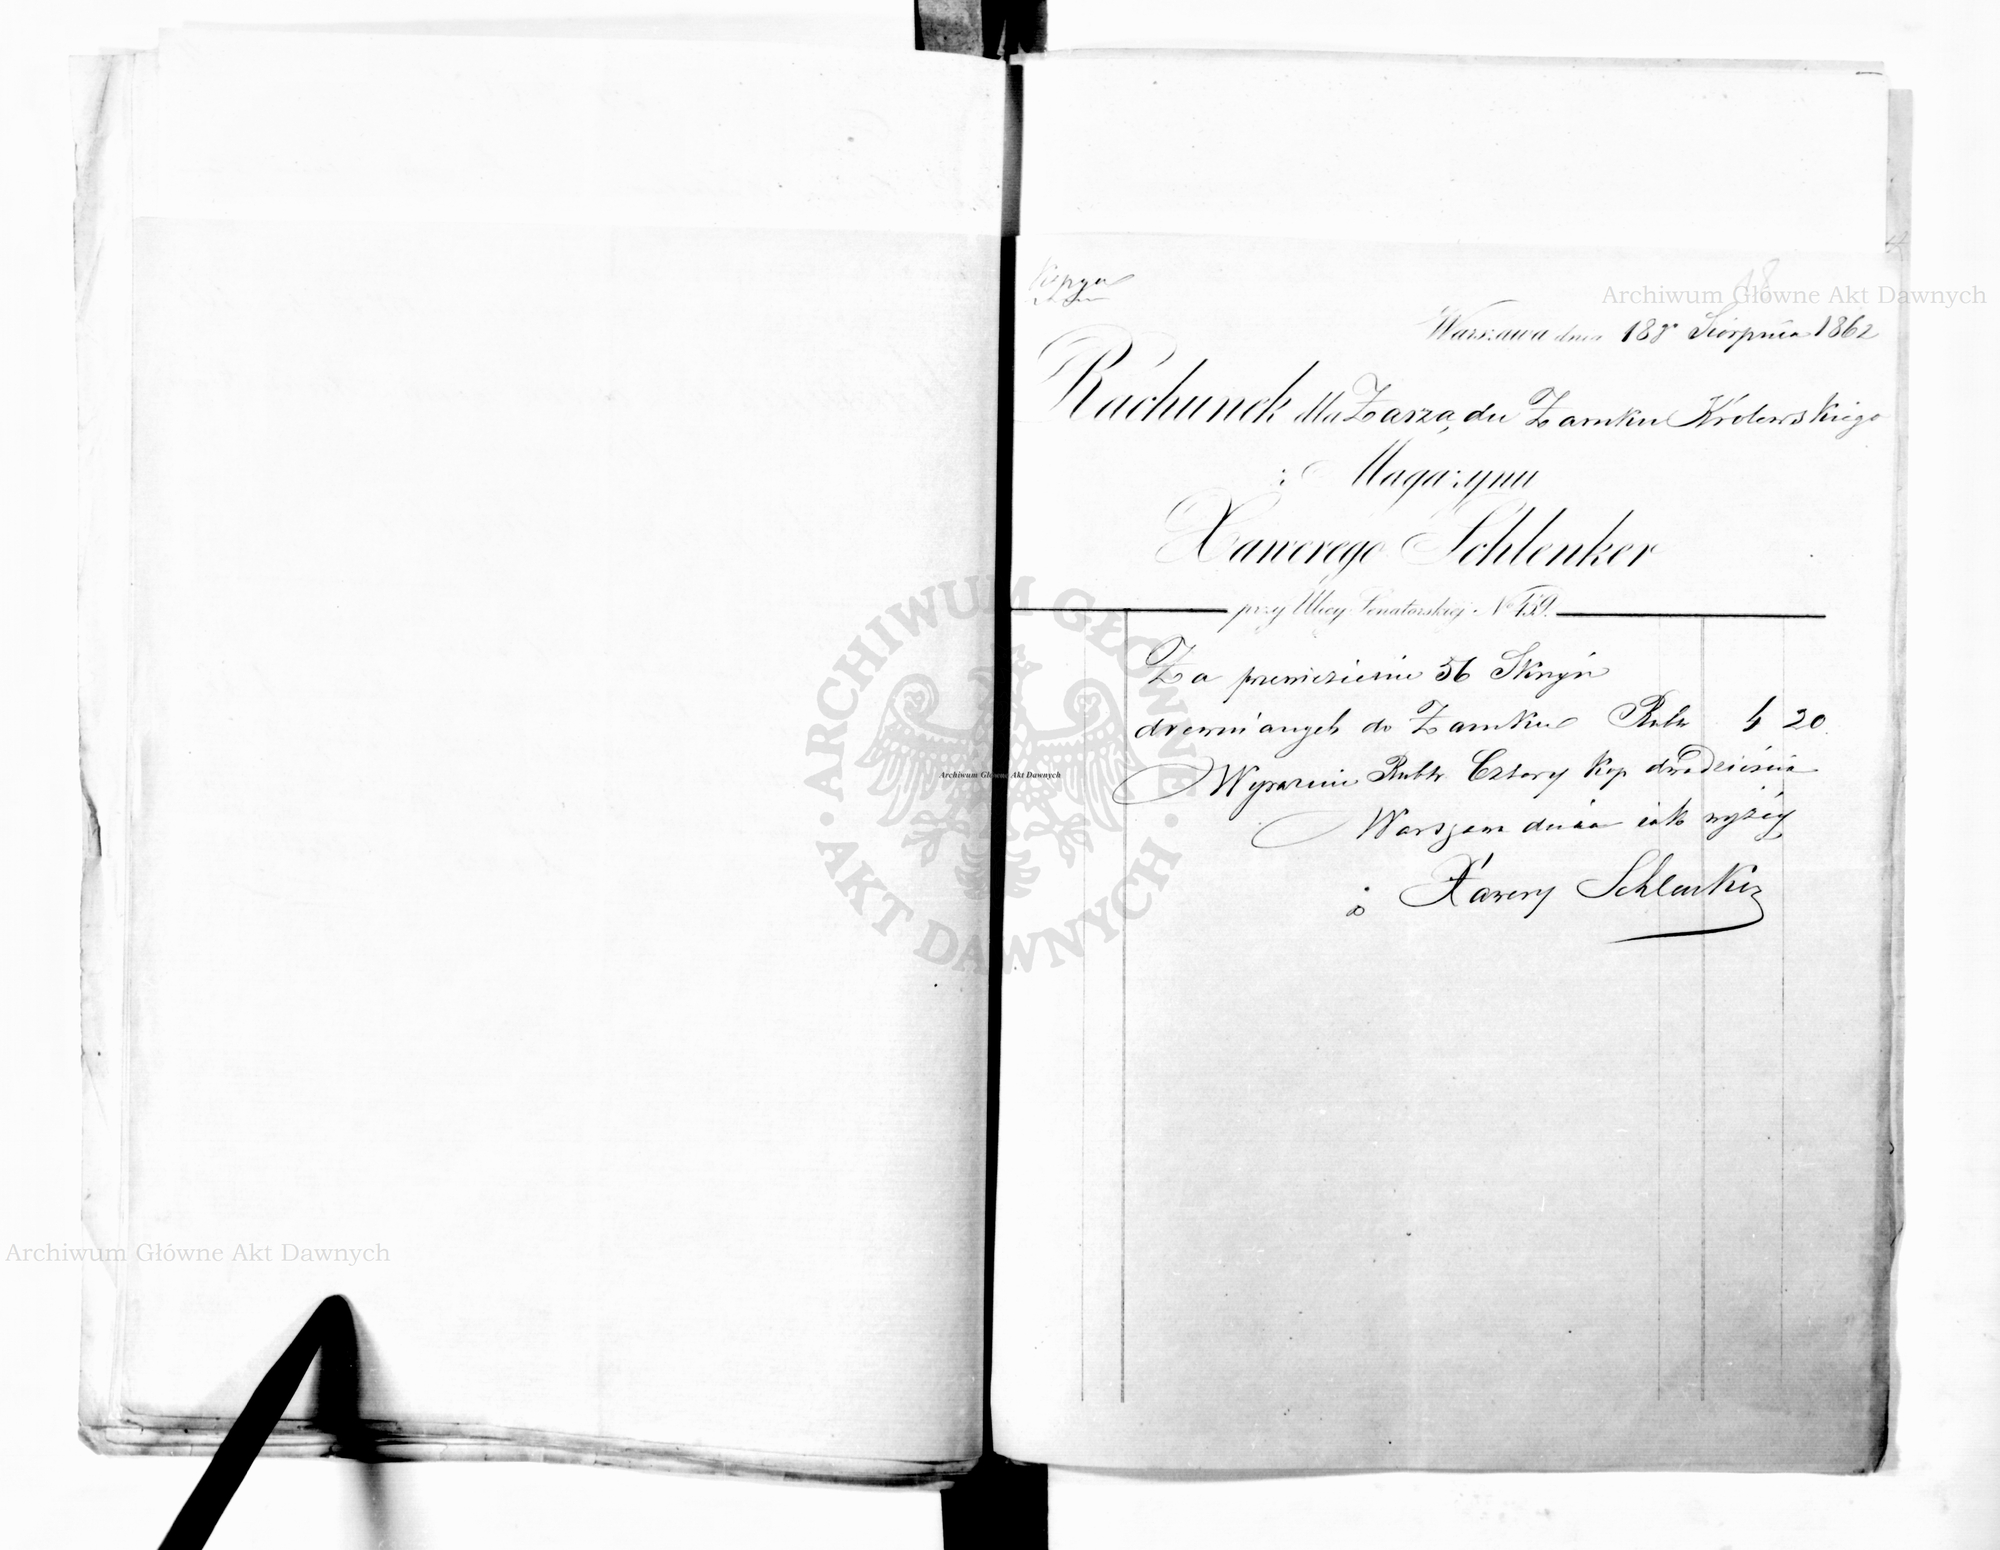 Kopya
18
4
Warszawa dnia 18go Sierpnia 1862
Rachunek dla Zarządu Zamku Królewskiego
z Magazynu
Xawerego Schlenker
przy Ulicy Senatorskiej No 459.
Za przewiezienie 56 Skrzyń
drewnianych do Zamku Rubr 4 20.
Wyraźnie Rubr. Cztery Kop dwadzieścia
Warszawa dnia jak wyżéj
Xawery Schlenker
Archiwum Główne Akt Dawnych
Archiwum Główne Akt Dawnych
Archiwum Główne Akt Dawnych
ARCHIWUM GŁÓWNE · AKT DAWNYCH ·